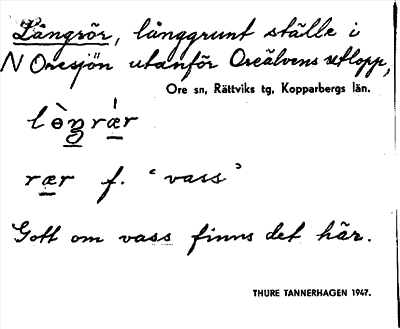 Långrör, långgrunt ställe i
N Oresjön utanför Oreälvens utlopp,
Ore sn, Rättviks tg, Kopparbergs län.
rær f. ‘vass’
Gott om vass finns det här.
THURE TANNERHAGEN 1947.